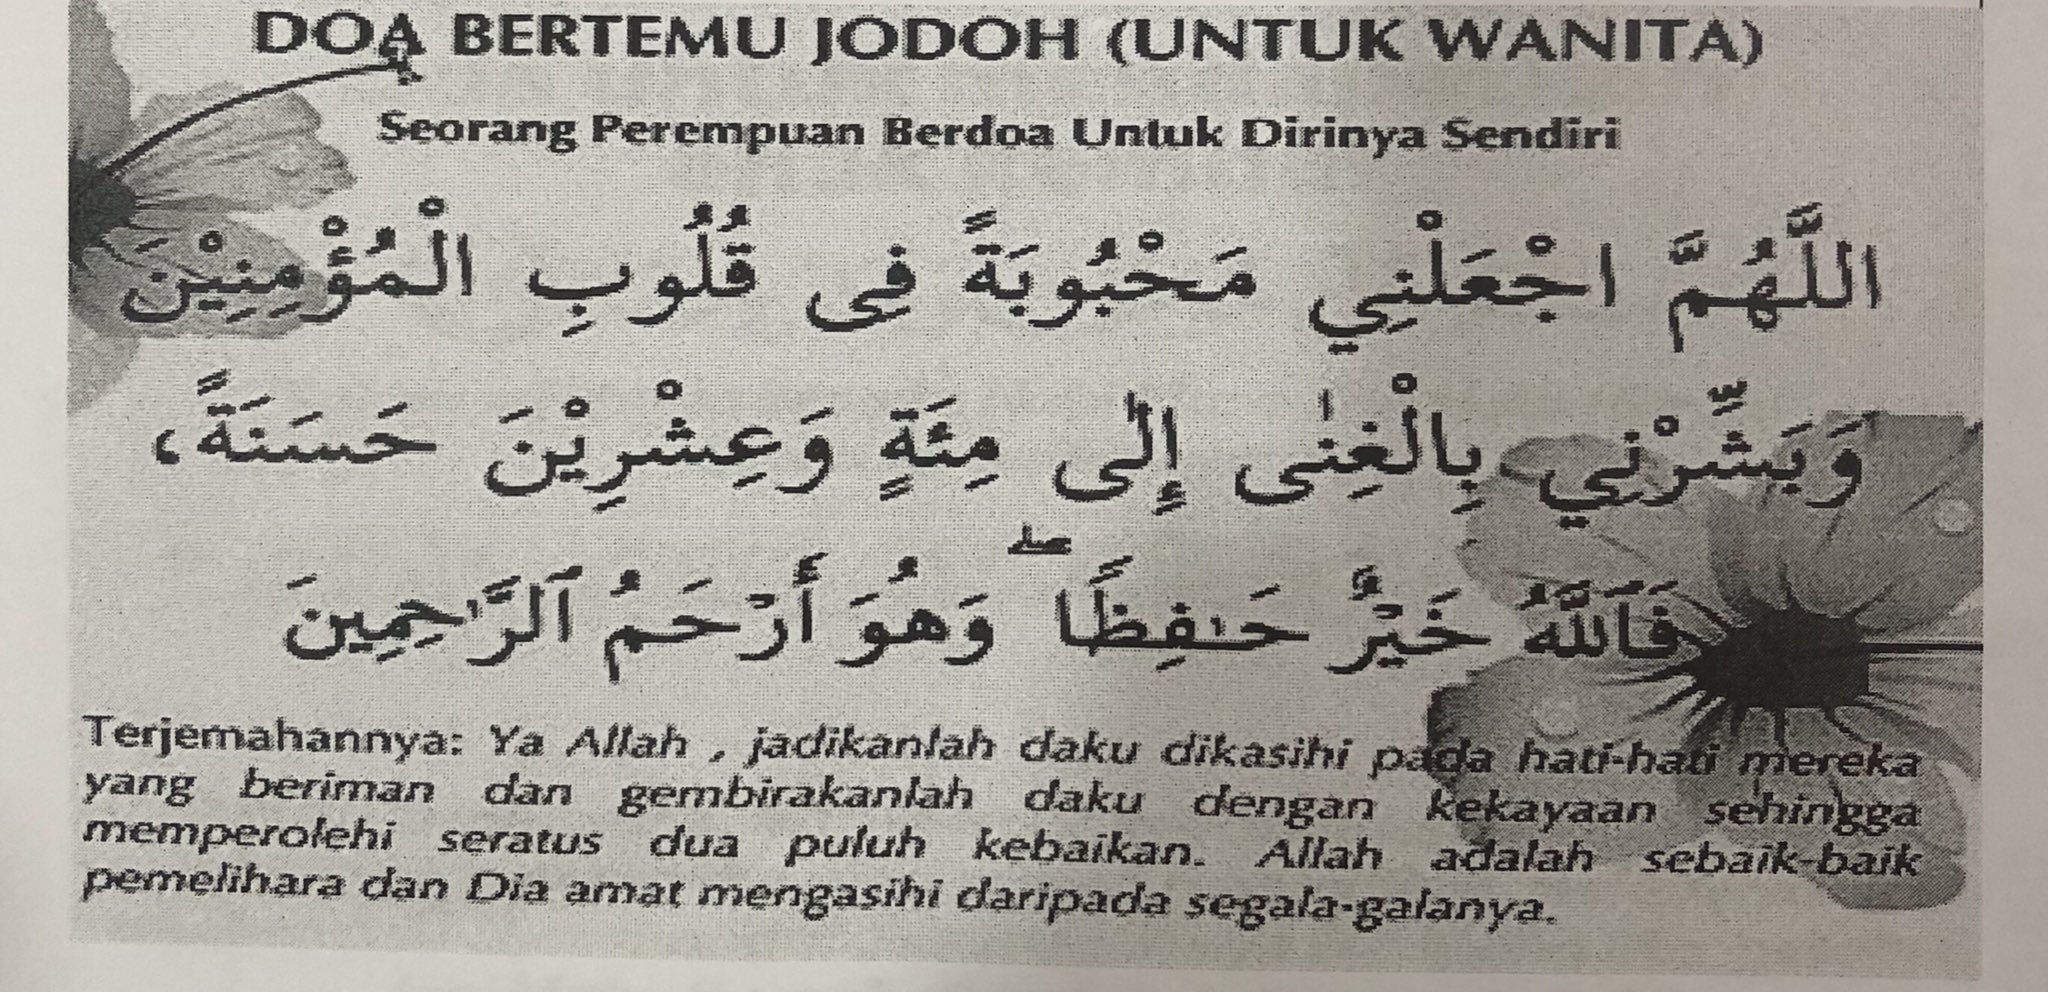 DOA BERTEMU JODOH (UNTUK WANITA)
Seorang Perempuan Berdoa Untuk Dirinya Sendiri
اللَّهُمَّ اجْعَلْنِي مَحْبُوبَةً فِى قُلُوبِ الْمُؤْمِنِيْنَ
وَبَشِّرْنِي بِالْغِنٰى إِلٰى مِئَةٍ وَعِشْرِيْنَ حَسَنَةً،
فَٱللَّهُ خَيْرٌ حَـٰفِظًا ۖ وَهُوَ أَرْحَمُ ٱلرَّٰحِمِينَ
Terjemahannya: Ya Allah , jadikanlah daku dikasihi pada hati-hati mereka
yang beriman dan gembirakanlah daku dengan kekayaan sehingga
memperolehi seratus dua puluh kebaikan. Allah adalah sebaik-baik
pemelihara dan Dia amat mengasihi daripada segala-galanya.